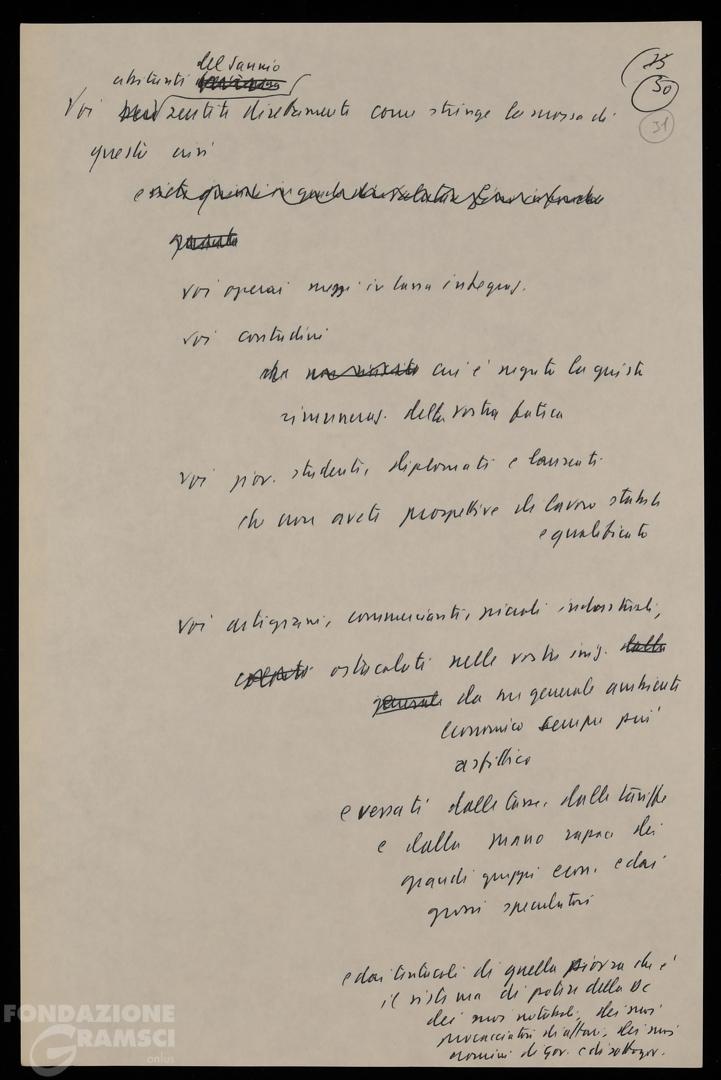 25
50
31
del Sannio
abitanti
Voi sentite direttamente come stringe la morsa di
questa crisi
e
voi operai messi in cassa integraz.
voi contadini
cui è negata la giusta
rimuneraz. della vostra fatica
voi giov. studenti, diplomati e laureati
che non avete prospettive di lavoro stabile
e qualificato
voi artigiani, commercianti, piccoli industriali,
ostacolati nelle vostre
generale da un generale ambiente
economico sempre più
asfittico
e vessati dalle tasse, dalle tariffe
e dalla mano rapace dei
grandi gruppi econ. e dai
grossi speculatori
e dai tentacoli di quella piovra che è
il sistema di potere della DC
dei suoi notabili, dei suoi
procacciatori di affari, dei suoi
uomini di Gov. e di sottogov.
FONDAZIONE
GRAMSCI
onlus